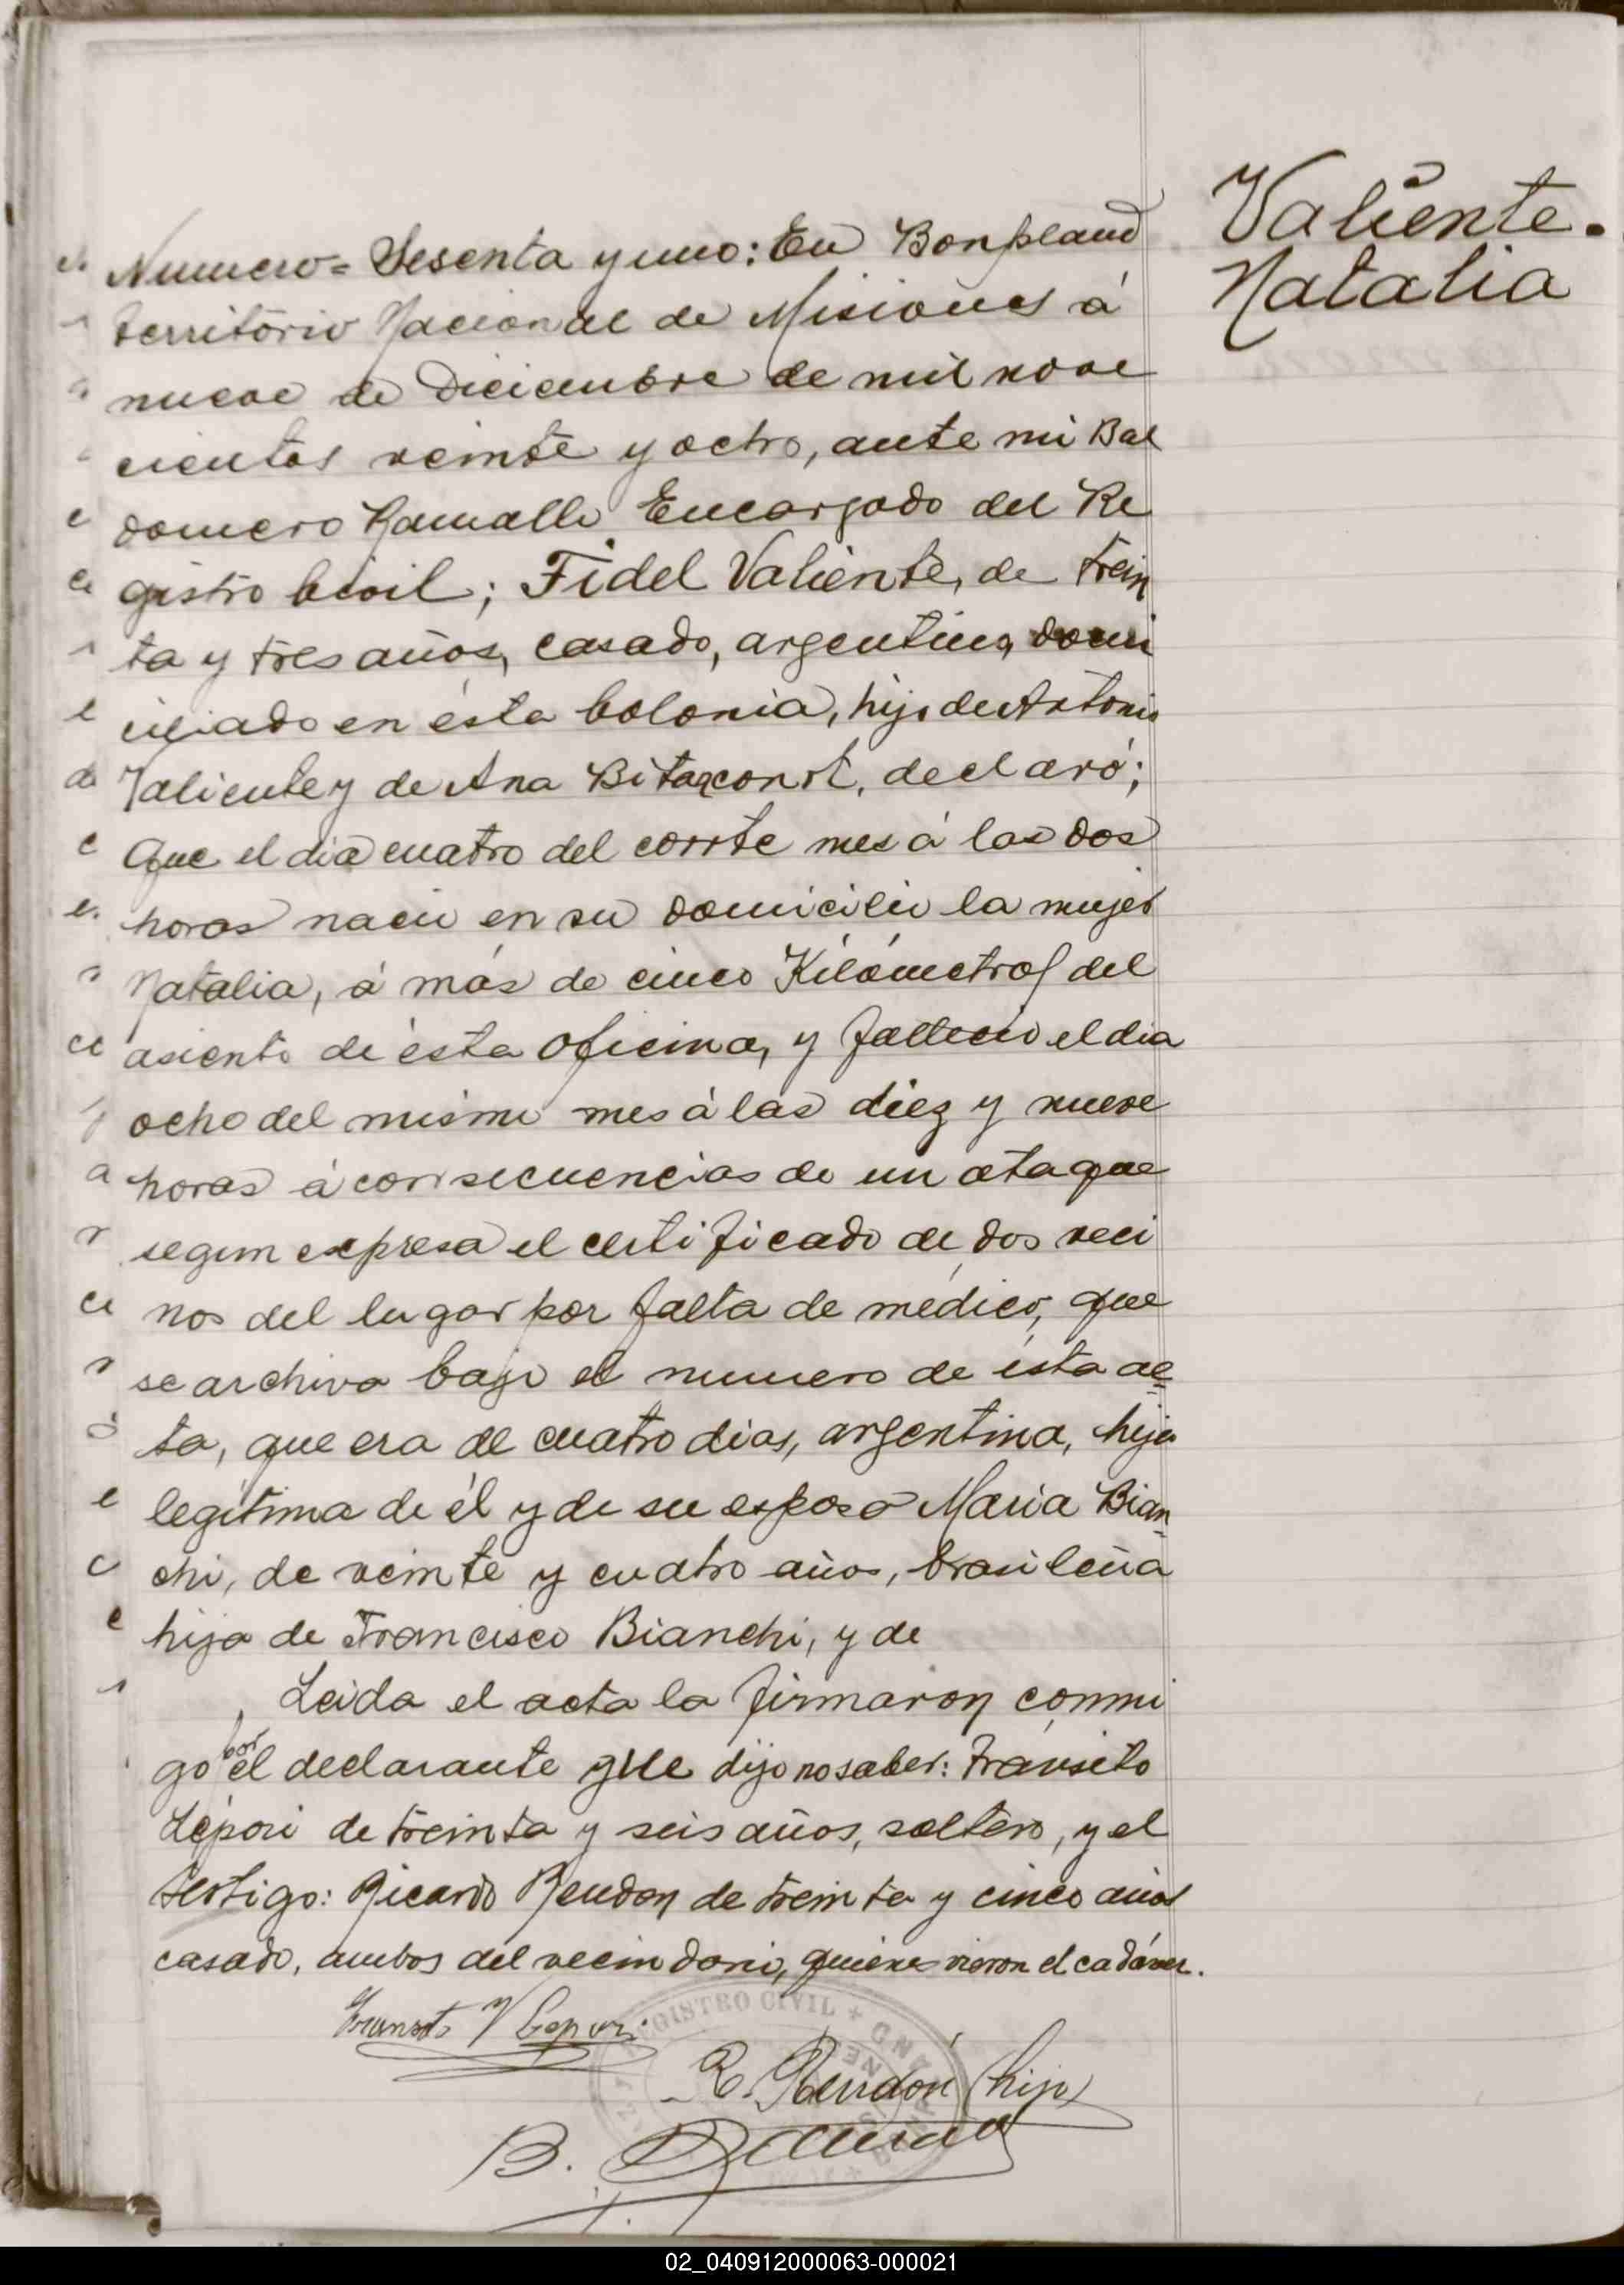 Valiente.
Natalia
Numero= Sesenta y uno: En Bonpland
territorio Nacional de Misiones á
nueve de Diciembre de mil nove
cientos veinte y ocho, ante mi Bal
domero Ramallo Encargado del Re
gistro Civil; Fidel Valiente, de trein
ta y tres años, casado, argentino, domi
ciliado en ésta Colonia, hijo de Antonio
Valiente y de Ana, declaró;
Que el dia cuatro del corrte mes á las dos
horas nació en su domicilio la mujer
Natalia, á más de cinco Kilómetros del
asiento de ésta Oficina, y falleció el dia
ocho del mismo mes á las diez y nueve
horas á consecuencias de un ataque
segun expresa el certificado de dos veci
nos del lugar por falta de médico, que
se archiva bajo el numero de ésta ac=
ta, que era de cuatro dias, argentina, hija
legítima de él y de su esposa Maria Bian=
chi, de veinte y cuatro años, brasileña
hija de Francisco Bianchi, y de
Leida el acta la firmaron conmi
go por el declarante que dijo no saber: Transito
Lépori de treinta y seis años, soltero, y el
testigo: Ricardo Rendon de treinta y cinco años
casado, ambos del vecindario, quienes vieron el cadáver.
Transito V Lepori
R. Rendón (hijo)
B. Ramallo
REGISTRO CIVIL +
02_040912000063-000021